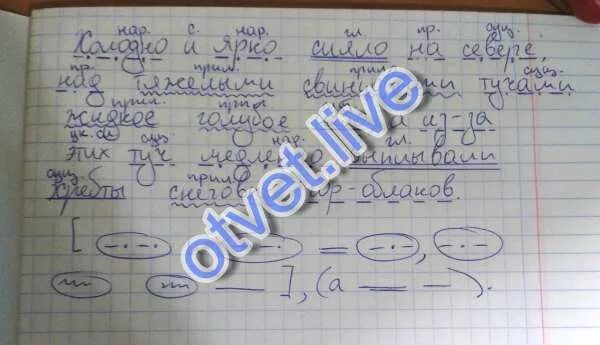 нар. с. нар. гл. пр. сущ.
Холодно и ярко сияло на севере,
пр. прил. прил. сущ.
над тяжелыми тучами
прил. прил.
жидкое голубое а из-за
сущ. нар. гл.
этих туч медленно выплывали
сущ. прил.
хребты гор-облаков.
[ = , ], (а ).
otvet.live